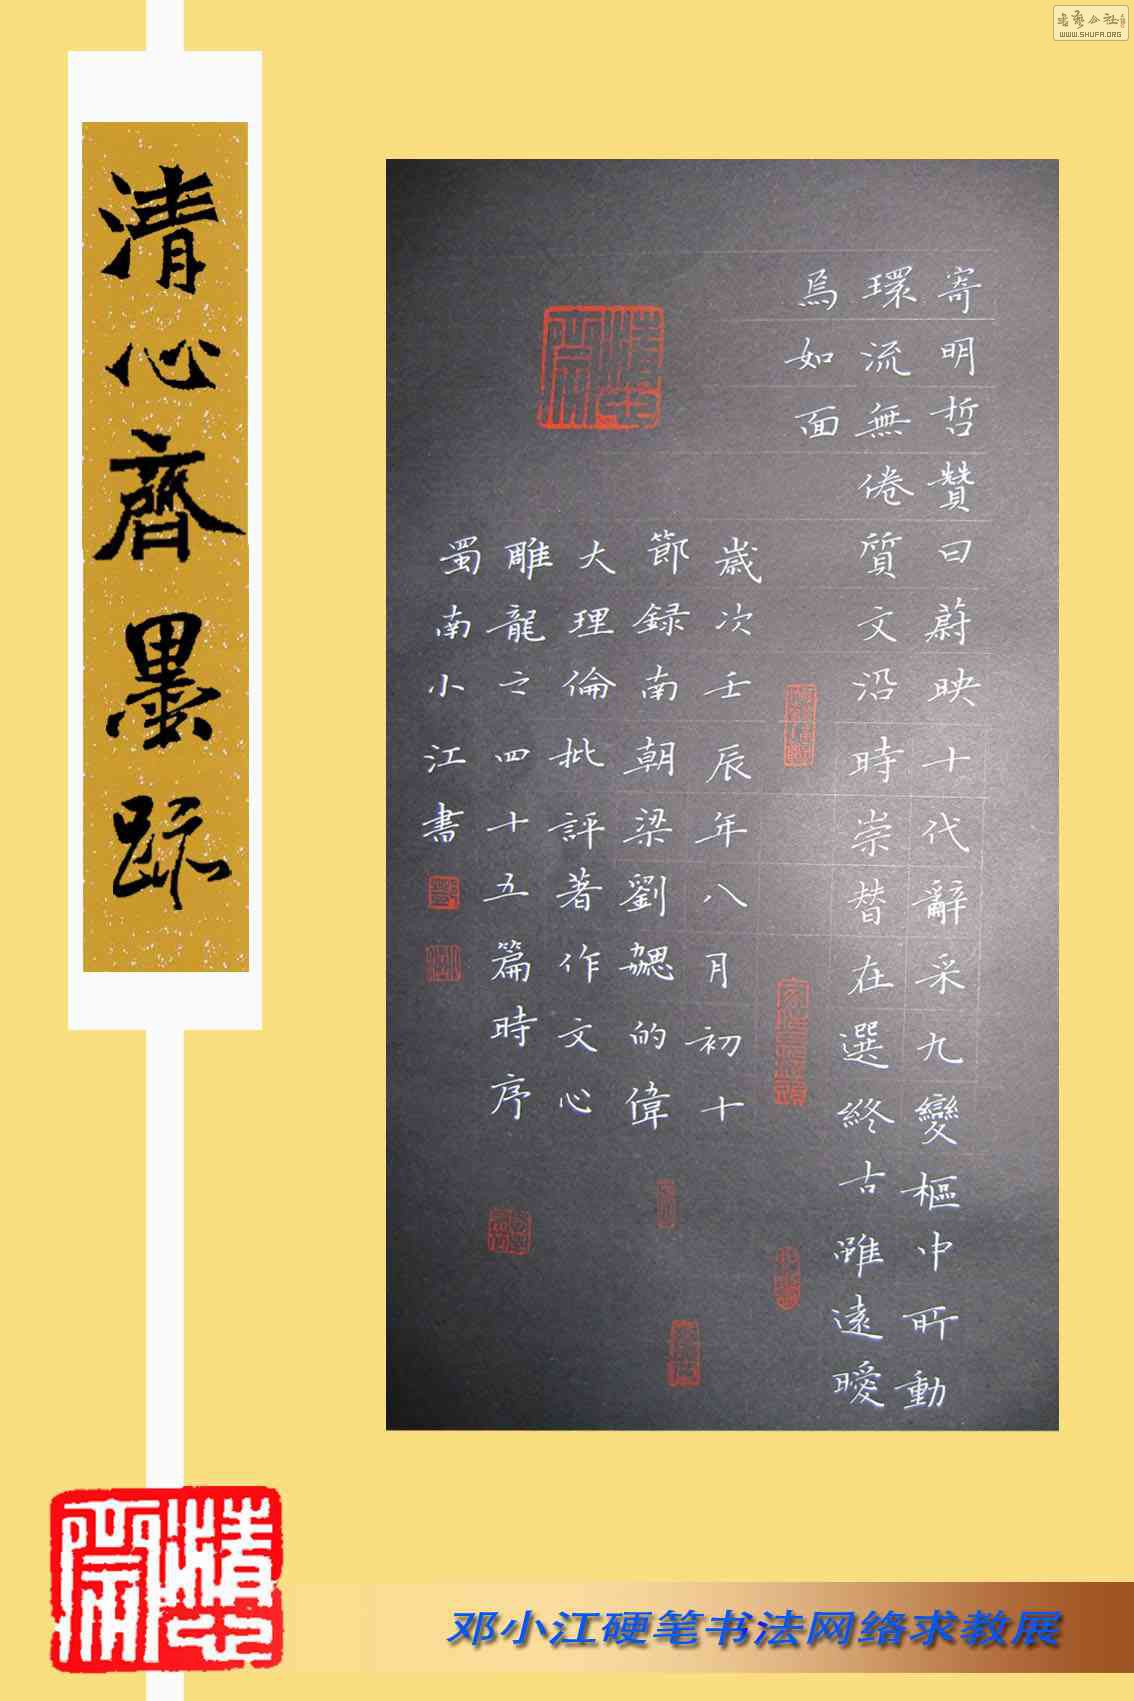 书艺公社
WWW.SHUFA.ORG
清心齊墨跡
寄明哲贊曰蔚映十代辭采九變樞中所動
環流無倦質文沿時崇替在選終古雖遠曖
焉如面
歲次壬辰年八月初十
節録南朝梁劉勰的偉
大理倫批評著作文心
雕龍之四十五篇時序
蜀南小江書
清心齋
清心齋
邓小江硬笔书法网络求教展